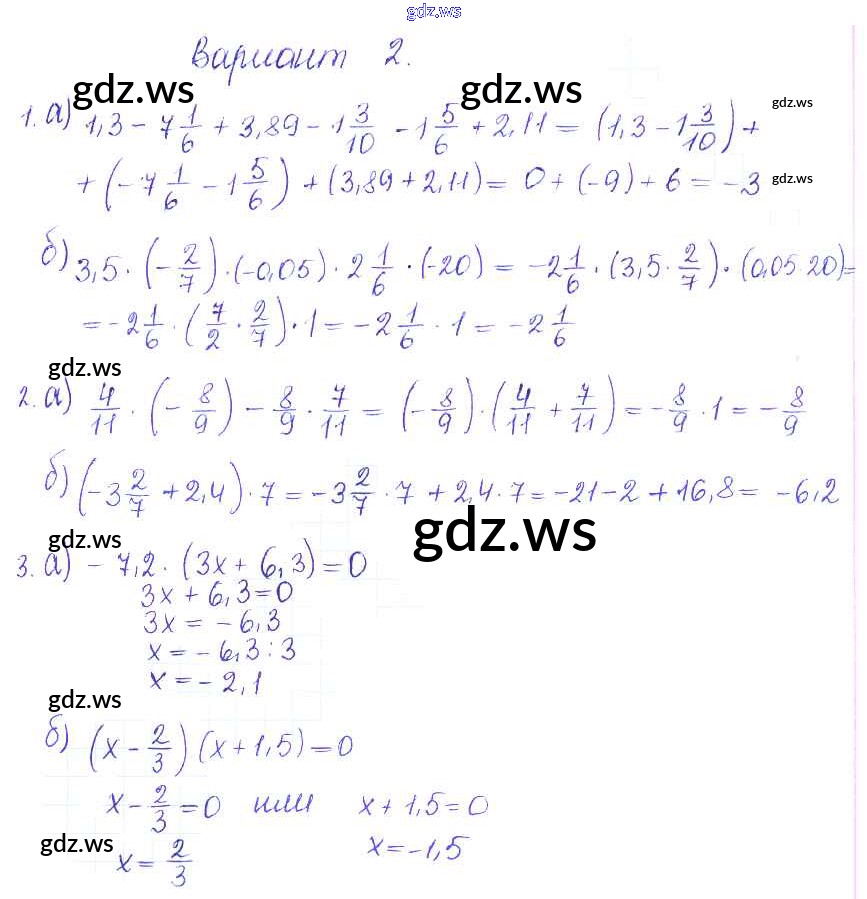 gdz.ws
Вариант 2.
gdz.ws gdz.ws gdz.ws
1. а) 1,3 - 7 1/6 + 3,89 - 1 3/10 - 1 5/6 + 2,11 = (1,3 - 1 3/10) +
+ (-7 1/6 - 1 5/6) + (3,89 + 2,11) = 0 + (-9) + 6 = -3 gdz.ws
б) 3,5 · (-2/7) · (-0,05) · 2 1/6 · (-20) = -2 1/6 · (3,5 · 2/7) · (0,05 · 20) =
= -2 1/6 · (7/2 · 2/7) · 1 = -2 1/6 · 1 = -2 1/6
gdz.ws
2. а) 4/11 · (-8/9) - 8/9 · 7/11 = (-8/9) · (4/11 + 7/11) = -8/9 · 1 = -8/9
б) (-3 2/7 + 2,4) · 7 = -3 2/7 · 7 + 2,4 · 7 = -21 - 2 + 16,8 = -6,2
gdz.ws gdz.ws
3. а) -7,2 · (3x + 6,3) = 0
3x + 6,3 = 0
3x = -6,3
x = -6,3 : 3
x = -2,1
gdz.ws
б) (x - 2/3) (x + 1,5) = 0
x - 2/3 = 0 или x + 1,5 = 0
gdz.ws
x = 2/3 x = -1,5